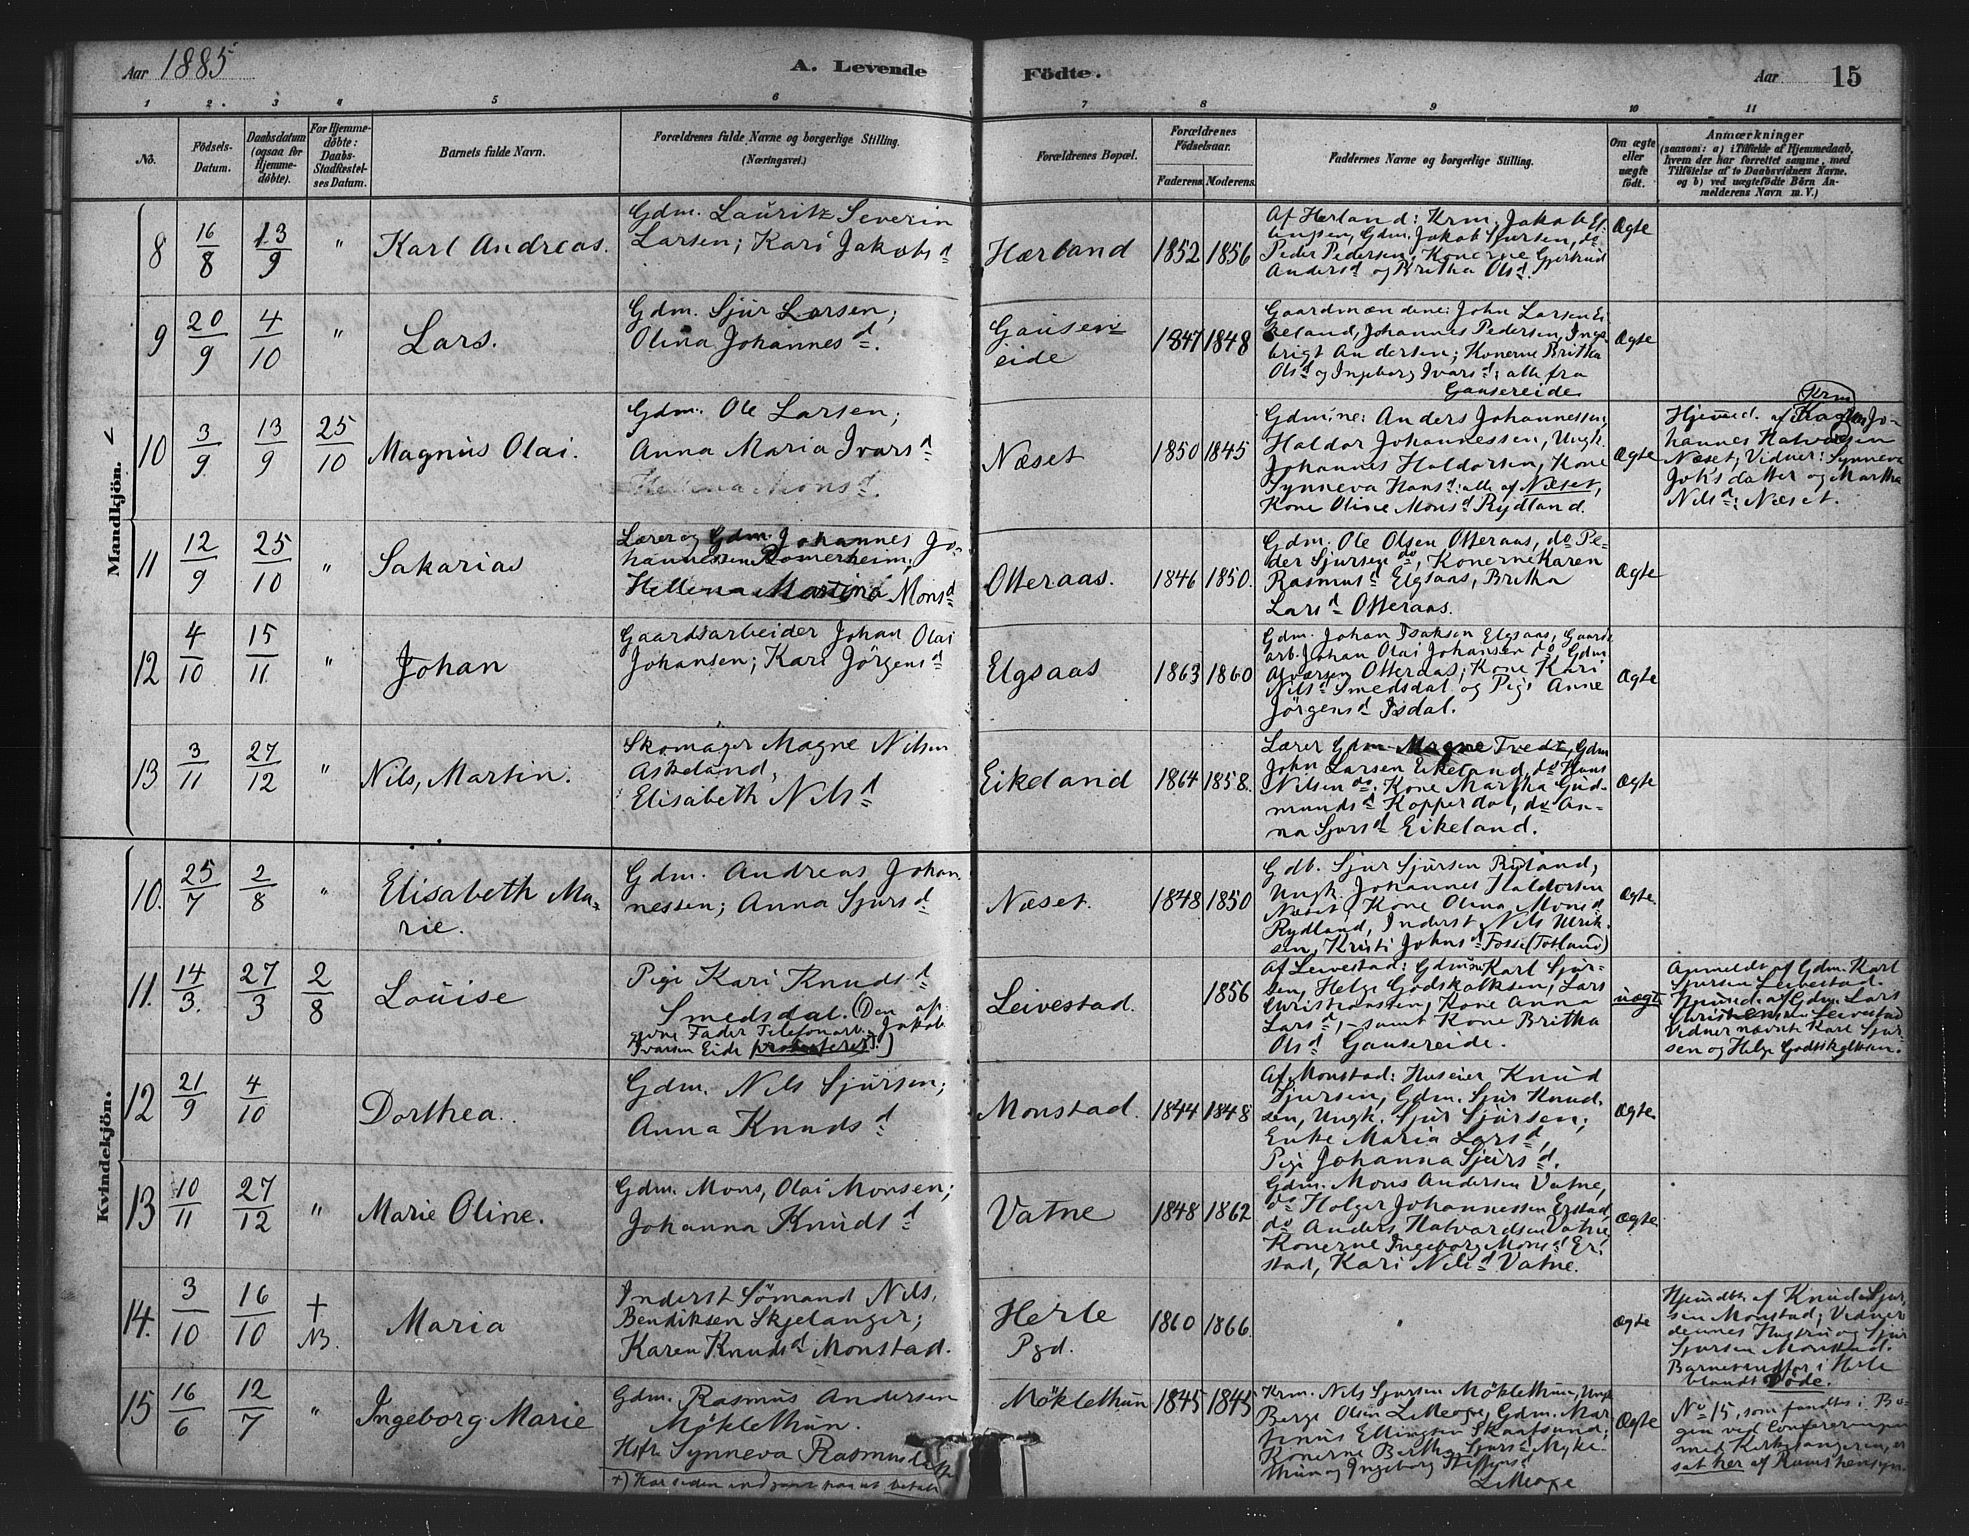 Aar 1885
A. Levende
Födte.
Aar
15
1 2. 3 4 5 6 7 8 9 10 11
No.
Födsels-
Datum.
Daabsdatum
(ogsaa for
Hjemme-
döbte).
For Hjemme-
döbte:
Daabs-
Stadfæstel-
ses Datum.
Barnets fulde Navn.
Forældrenes fulde Navne og borgerlige Stilling.
(Næringsvei.)
Forældrenes Bopæl.
Forældrenes
Födselsaar.
Faderens. Moderens.
Faddernes Navne og borgerlige Stilling.
Om ægte
eller
uægte
födt.
Anmærkninger
(saasom: a) i Tilfælde af Hjemmedaab,
hvem der har forrettet samme, med
Tilföielse af to Daabsvidners Navne.
og b) ved uægtefödte Börn An-
melderens Navn m. V.)
Mandkjön.
8
16/8
13/9
"
Karl Andreas.
Gdm. Lauritz Severin
Larsen; Kari Jakobsd
Hærland
1852 1856
Af Hærland: Krm. Jakob El-
Gdm. Jakob Sjursen, do
Peder Pedersen, Konerne Gjertrud
Andersd og Britha Olsd.
Ægte
9
20/9
4/10
"
Lars.
Gdm. Sjur Larsen;
Olina Johannesd.
Gausereide
1847 1848
Gaardmændene: John Larsen Ei-
keland, Johannes Pedersen, Inge-
brigt Andersen; Konerne Britha
Olsd og Ingeborg Ivarsd; alle fra
Gausereide
Ægte
10
3/9.
13/9
25/10
Magnus Olai.
Gdm. Ole Larsen;
Anna Maria Ivarsd
Hellena Monsd.
Næset
1850 1845
Gdmne: Anders Johannessen,
Haldor Johannessen, Ungk.
Johannes Haldorsen, Kone
Synneva Hansd; alle af Næset,
Kone Oline Monsd Rydland.
Ægte
Krm
Hjemmed. af Jo-
hannes Halvorsen
Næset, Vidner: Synneva
datter og Martha
Nilsd: Næset.
11
12/9
25/10
"
Sakarias
Lærer og Gdm. Johannes Jo-
hannessen Romerheim,
Hellena Martina Monsd
Otteraas.
1846 1850.
Gdm. Ole Olsen Otteraas, do Pe-
der Sjursen do, Konerne Karen
Rasmusd Elgsaas, Britha
Larsd Otteraas.
Ægte
12
4/10
15/11.
"
Johan
Gaardsarbeider Johan Olai
Johansen; Kari Jörgensd
Elgsaas
1863 1860
Gdm. Johan Isaksen Elgsaas, Gaards-
arb. Johan Olai Johansen do, Gdm
Otteraas; Kone Kari
Nilsd Smedsdal og Pige Anne
Jörgensd Isdal.
Ægte
13
3/11
27/12
"
Nils, Martin.
Skomager Magne Nilsen
Askeland,
Elisabeth Nilsd
Eikeland
1864 1858.
Lærer Gdm Magne Tvedt, Gdm
John Larsen Eikeland, do Hans
Nilsen do. Kone Martha Gud-
mundsd Kopperdal, do An-
na Sjursd Eikeland.
Ægte
Kvindekjön.
10.
25/7
2/8
"
Elisabeth Ma-
rie.
Gdm. Andreas Johan-
nessen; Anna Sjursd
Næset.
1848 1850
Gdb. Sjur Sjursen Rydland,
Ungk. Johannes Haldorsen
Næset, Kone Olina Monsd
Rydland, Inderst Nils Ulrik-
sen, Kristi Johnsd Fosse (Totland)
Ægte.
11.
14/3.
27/3
2/8
Louise
Pige Kari Knudsd
Smedsdal. (Den op-
givne Fader Telefonarb. Jakob
Ivarsen Eide protesterer).)
Leivestad.
1856
Af Leivestad: Gdmne Karl Sjur-
sen, Helge Godskalksen, Lars
Christiansen, Kone Anna
Larsd, - samt Kone Britha
Olsd Gausereide.
uægte
Anmeldt af Gdm. Karl
Sjursen Leivestad.
Hjemmed. af Gdm. Lars
Christensen Leivestad
Vidner nævnte Karl Sjur-
sen og Helge Godtskalksen.
12
21/9
4/10
Dorthea.
Gdm. Nils Sjursen;
Anna Knudsd
Monstad.
1844 1848
Af Monstad: Huseier Knud
Sjursen, Gdm. Sjur Knud-
sen, Ungk. Sjur Sjursen;
Enke Maria Larsd,
Pige Johanna Sjursd.
Ægte
13
10/11
27/12
"
Marie Oline.
Gdm. Mons, Olai Monsen;
Johanna Knudsd
Vatne
1848 1862
Gdm. Mons Andersen Vatne,
do Holger Johannessen Erstad,
do Anders Halvardsen Vatne,
Konerne Ingeborg Monsd Er-
stad, Kari Nilsd Vatne.
Ægte
14.
3/10
16/10
+
NB.
Maria
Inderst Sömand Nils,
Bendiksen Skjelanger;
Karen Knudsd Monstad.
Herle
Pgd.
1860 1866.
Ægte
Hjemdbt af Knud Sjur-
sen Monstad; Vidner
dennes Hustru og Sjur
Sjursen Monstad.
Barnet indfor i Herle
blandt Döde.
15
16/6
12/7
"
Ingeborg Marie
Gdm. Rasmus Andersen
Möklethun.
Hstr Synneva Rasmusdatter
Möklethun
1845 1845
Krm. Nils Sjursen Möklethun, Ungk
Berge Olsen Gdm. Mar-
tinus Ellingsen
Konerne Bertha Sjursd Mykle-
thun og Ingeborg
Ægte
No 15, som fandtes i Bo-
gen ved Confereringen
med Kirkesangeren, er
sat her af
+) Har siden